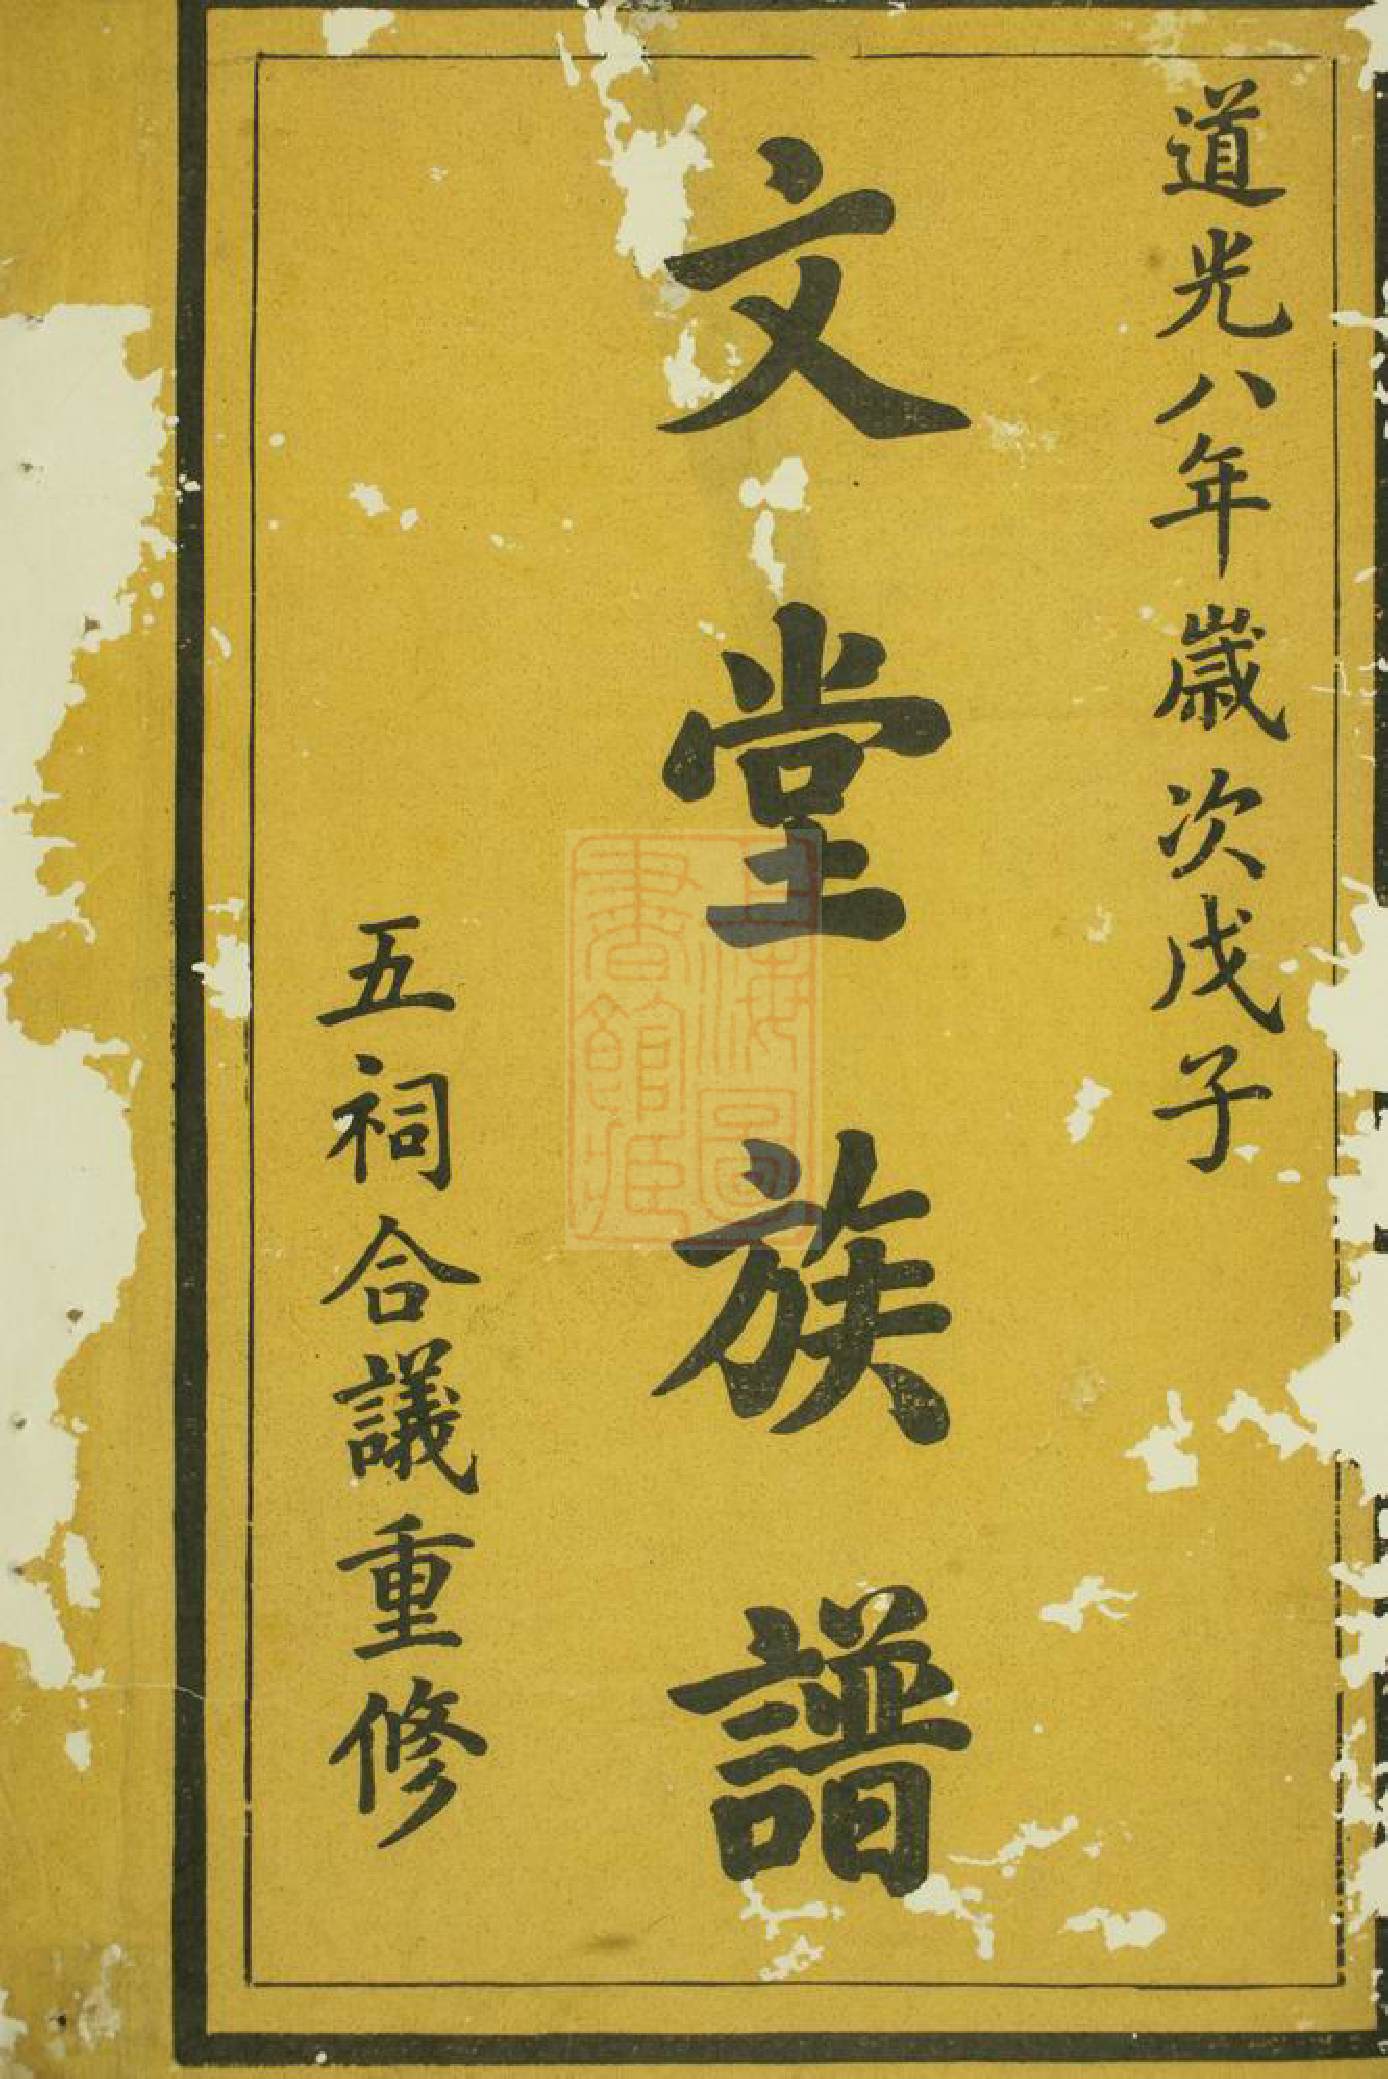 道光八年歲次戊子
文堂族譜
五祠合議重修
上海圖書館藏